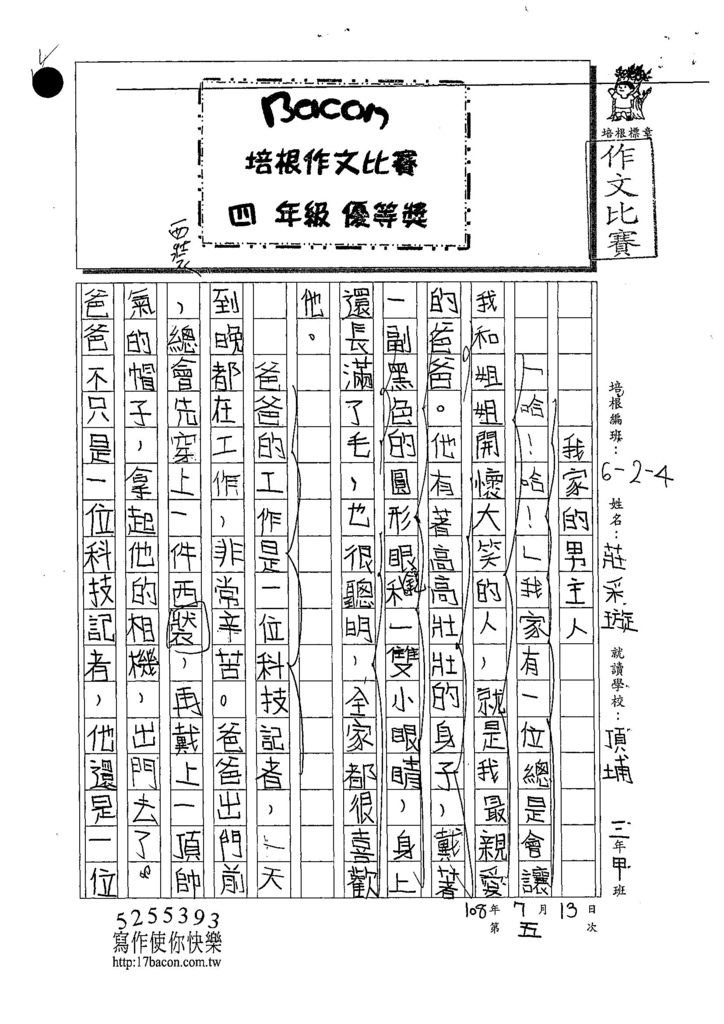 Bacon
培根作文比賽
四 年級 優等獎
西裝
培根標章
作文比賽
培根編班：6-2-4 姓名：莊采璇 就讀學校：頂埔 三年甲班
我家的男主人
「哈！哈！」我家有一位總是會讓
我和姐姐開懷大笑的人，就是我最親愛
的爸爸。他有著高高壯壯的身子，戴著
一副黑色的圓形眼鏡和一雙小眼睛，身上
還長滿了毛，也很聰明，全家都很喜歡
他。
爸爸的工作是一位科技記者，一天
到晚都在工作，非常辛苦。爸爸出門前
，總會先穿上一件西裝，再戴上一頂帥
氣的帽子，拿起他的相機，出門去了。
爸爸不只是一位科技記者，他還是一位
108年7月13日
第五次
5255393
寫作使你快樂
http:17bacon.com.tw